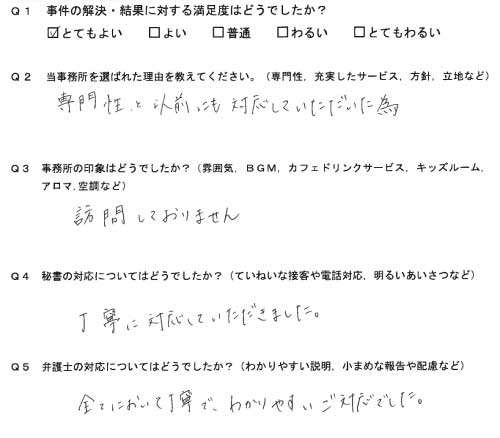 Q1 事件の解決・結果に対する満足度はどうでしたか？
☑とてもよい □よい □普通 □わるい □とてもわるい
Q2 当事務所を選ばれた理由を教えてください。（専門性，充実したサービス，方針，立地など）
専門性と以前にも対応していただいた為
Q3 事務所の印象はどうでしたか？（雰囲気，BGM，カフェドリンクサービス，キッズルーム，
アロマ,空調など）
訪問しておりません
Q4 秘書の対応についてはどうでしたか？（ていねいな接客や電話対応，明るいあいさつなど）
丁寧に対応していただきました。
Q5 弁護士の対応についてはどうでしたか？（わかりやすい説明，小まめな報告や配慮など）
全てにおいて丁寧で、わかりやすいご対応でした。